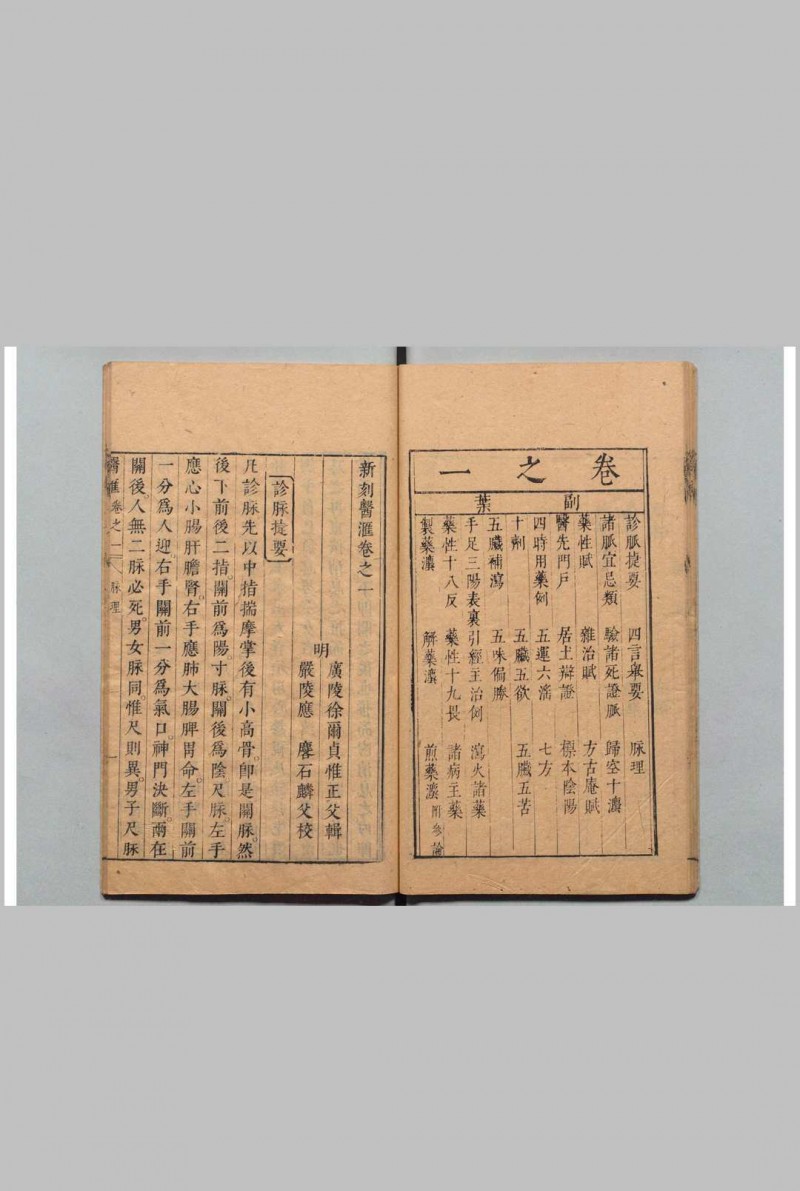 卷之一
副葉
診脈捷要 四言舉要 脉理
諸脈宜忌類 驗諸死證脈 歸空十瀍
藥性賦 雜治賦 方古庵賦
醫先門戶 居士辯證 標本陰陽
四時用藥例 五運六滛 七方
十劑 五臟五欲 五臓五苦
五臟補瀉 五味偏勝
手足三陽表裏 引經主治例 瀉火諸藥
藥性十八反 藥性十九畏 諸病主藥
製藥瀍 解藥瀍 煎藥瀍 附參論
新刻醫滙卷之一
明 廣陵徐爾貞惟正父輯
嚴陵應 麐石麟父校
診脉捷要
凡診脉先以中指揣摩掌後有小高骨。卽是關脉。然
後下前後二指。關前爲陽寸脉。關後爲陰尺脉。左手
應心小腸肝膽腎。右手應肺大腸脾胃命。左手關前
一分爲人迎。右手關前一分爲氣口。神門決斷。兩在
關後。人無二脉必死。男女脉同。惟尺則異。男子尺脉
醫滙卷之一 脉理 一